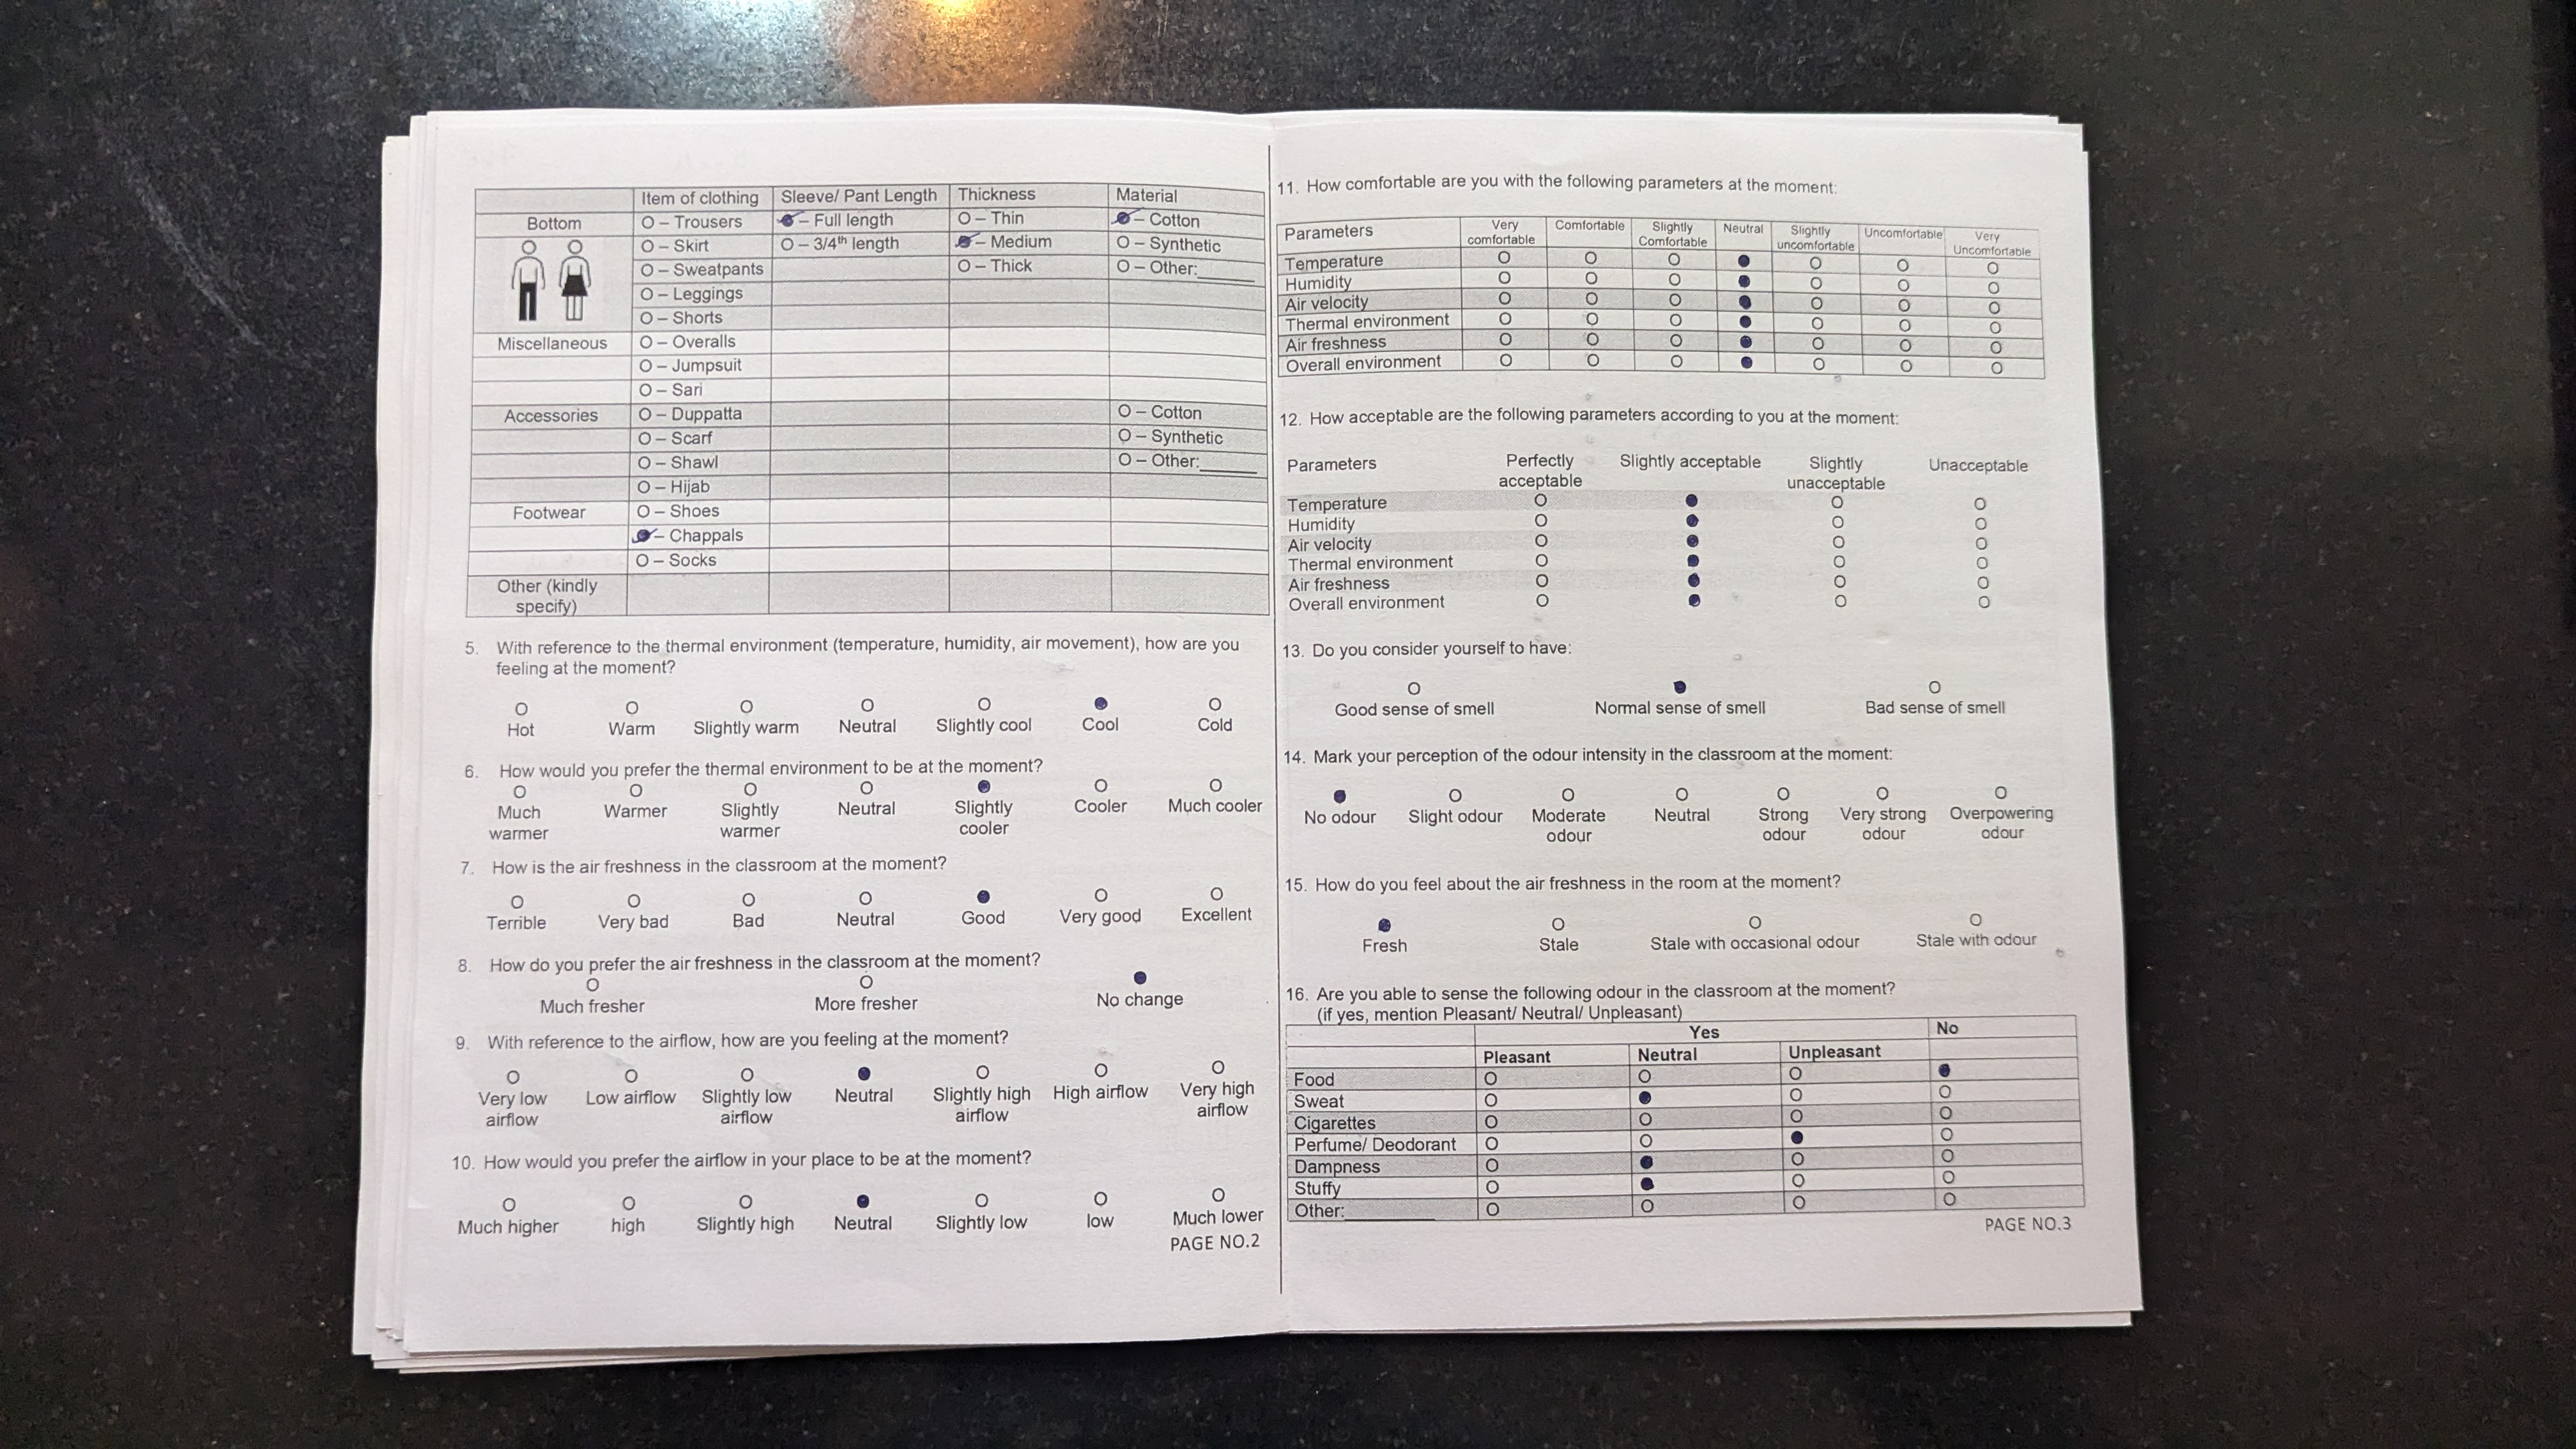 Item of clothing Sleeve/ Pant Length Thickness Material
Bottom O – Trousers – Full length O – Thin – Cotton
O – Skirt O – 3/4th length – Medium O – Synthetic
O – Sweatpants O – Thick O – Other:______
O – Leggings
O – Shorts
Miscellaneous O – Overalls
O – Jumpsuit
O – Sari
Accessories O – Duppatta O – Cotton
O – Scarf O – Synthetic
O – Shawl O – Other:______
O – Hijab
Footwear O – Shoes
– Chappals
O – Socks
Other (kindly
specify)
5. With reference to the thermal environment (temperature, humidity, air movement), how are you
feeling at the moment?
Hot Warm Slightly warm Neutral Slightly cool Cool Cold
6. How would you prefer the thermal environment to be at the moment?
Much Warmer Slightly Neutral Slightly Cooler Much cooler
warmer warmer cooler
7. How is the air freshness in the classroom at the moment?
Terrible Very bad Bad Neutral Good Very good Excellent
8. How do you prefer the air freshness in the classroom at the moment?
Much fresher More fresher No change
9. With reference to the airflow, how are you feeling at the moment?
Very low Low airflow Slightly low Neutral Slightly high High airflow Very high
airflow airflow airflow airflow
10. How would you prefer the airflow in your place to be at the moment?
Much higher high Slightly high Neutral Slightly low low Much lower
PAGE NO.2
11. How comfortable are you with the following parameters at the moment:
Parameters Very Comfortable Slightly Neutral Slightly Uncomfortable Very
comfortable Comfortable uncomfortable Uncomfortable
Temperature
Humidity
Air velocity
Thermal environment
Air freshness
Overall environment
12. How acceptable are the following parameters according to you at the moment:
Parameters Perfectly Slightly acceptable Slightly Unacceptable
acceptable unacceptable
Temperature
Humidity
Air velocity
Thermal environment
Air freshness
Overall environment
13. Do you consider yourself to have:
Good sense of smell Normal sense of smell Bad sense of smell
14. Mark your perception of the odour intensity in the classroom at the moment:
No odour Slight odour Moderate Neutral Strong Very strong Overpowering
odour odour odour odour
15. How do you feel about the air freshness in the room at the moment?
Fresh Stale Stale with occasional odour Stale with odour
16. Are you able to sense the following odour in the classroom at the moment?
(if yes, mention Pleasant/ Neutral/ Unpleasant)
Yes No
Pleasant Neutral Unpleasant
Food
Sweat
Cigarettes
Perfume/ Deodorant
Dampness
Stuffy
Other:__________
PAGE NO.3